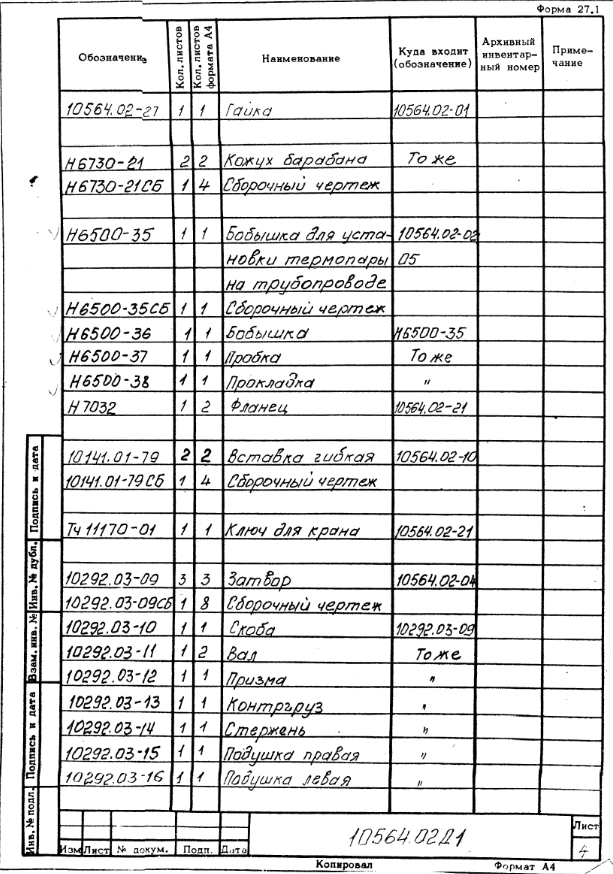 Форма 27.1
Обозначение Кол. листов Кол. листов формата А4 Наименование Куда входит (обозначение) Архивный инвентарный номер Примечание
10564.02-27 1 1 Гайка 10564.02-01
Н6730-21 2 2 Кожух барабана То же
Н6730-21СБ 1 4 Сборочный чертеж
Н6500-35 1 1 Бобышка для уста- 10564.02-02
новки термопары 05
на трубопроводе
Н6500-35СБ 1 1 Сборочный чертеж
Н6500-36 1 1 Бобышка Н6500-35
Н6500-37 1 1 Пробка То же
Н6500-38 1 1 Прокладка "
Н7032 1 2 Фланец 10564.02-21
10141.01-79 2 2 Вставка гибкая 10564.02-10
10141.01-79СБ 1 4 Сборочный чертеж
Тч11170-01 1 1 Ключ для крана 10564.02-21
10292.03-09 3 3 Затвор 10564.02-04
10292.03-09СБ 1 8 Сборочный чертеж
10292.03-10 1 1 Скоба 10292.03-09
10292.03-11 1 2 Вал То же
10292.03-12 1 1 Призма "
10292.03-13 1 1 Контргруз "
10292.03-14 1 1 Стержень "
10292.03-15 1 1 Подушка правая "
10292.03-16 1 1 Подушка левая "
Инв. № подл. Подпись и дата Взам. инв. № Инв. № дубл. Подпись и дата
10564.02Д1
Лист
4
Изм Лист № докум. Подп. Дата
Копировал Формат А4